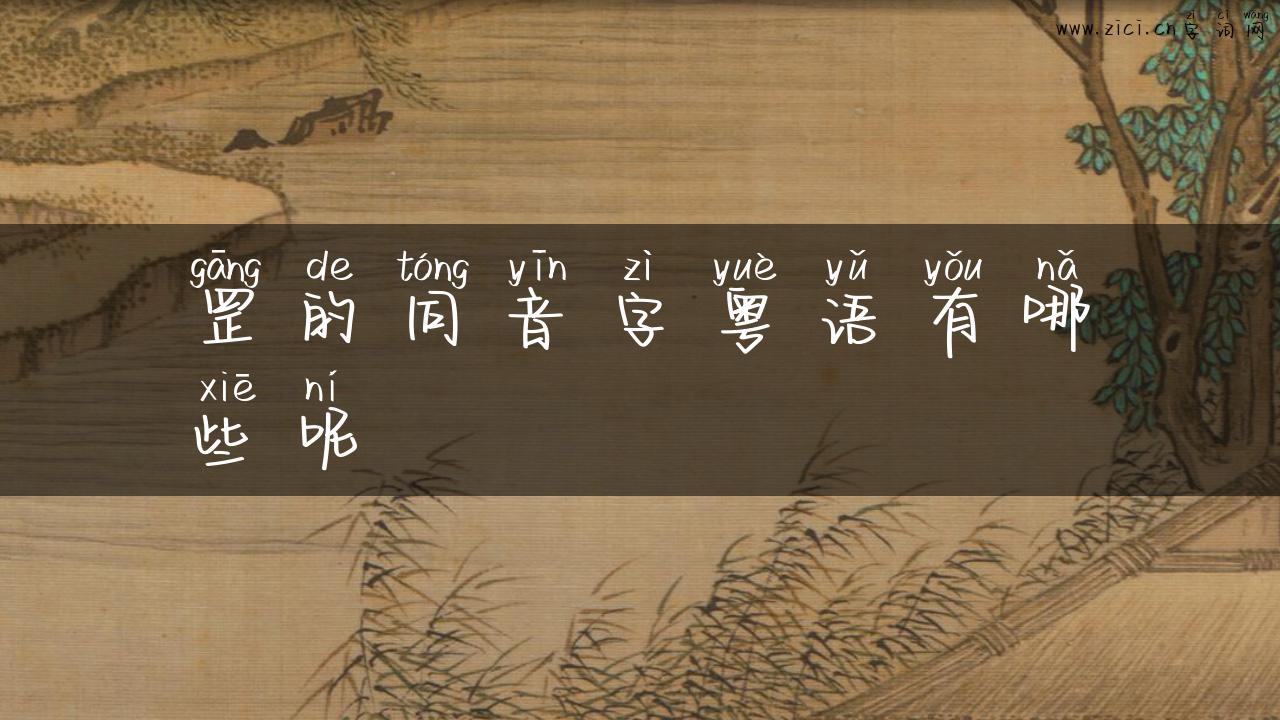 zì cí wǎng
www.zici.cn字词网
gāng de tóng yīn zì yuè yǔ yǒu nǎ
罡的同音字粤语有哪
xiē ní
些呢